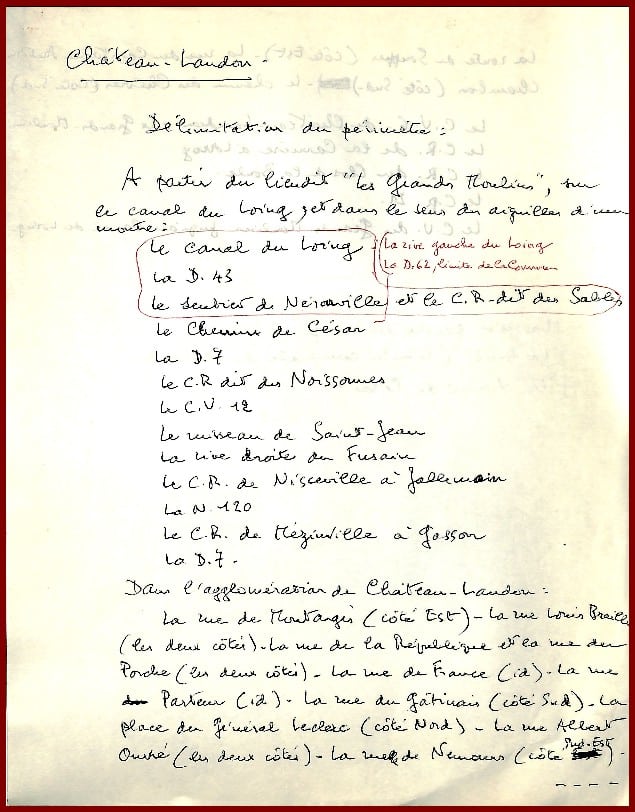 Château-Landon.
Délimitation du périmètre :
A partir du lieudit "les Grands Moulins", sur
le canal du Loing et dans le sens des aiguilles d'une
montre :
le canal du Loing
la rive gauche du Loing
La D. 43
La D.62, limite de la Commune
le sentier de Néronville et le C.R. dit des Sables
le Chemin de César
La D.7
le C.R dit des
le C.V. 12
Le ruisseau de Saint-Jean
La rive droite du Fusain
le C.R. de à Jallemain
La N. 120
Le C.R. de Mézinville à
La D.7.
Dans l'agglomération de Château-Landon :
La rue de Montargis (côté Est) - La rue Louis Braille
(les deux côtés). La rue de la République et la rue du
Porche (les deux côtés) - La rue de France (id) - La rue
Pasteur (id) - La rue du Gâtinais (côté Sud) - La
place du Général Leclerc (côté Nord) - La rue Albert
Ouvré (les deux côtés) - La rue de Nemours (côté Sud-Est).